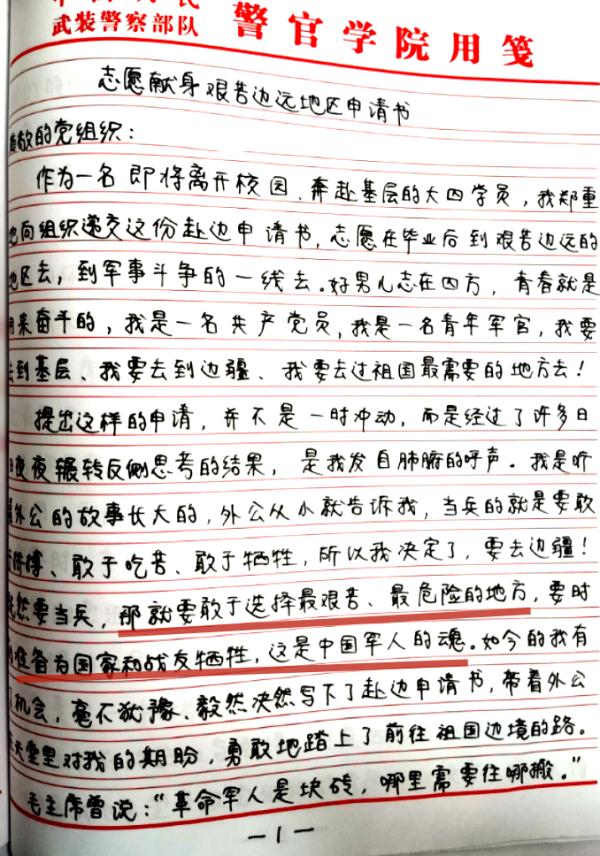 武装警察部队 警官学院用笺
志愿献身艰苦边远地区申请书
敬的党组织：
作为一名即将离开校园、奔赴基层的大四学员，我郑重
地向组织递交这份赴边申请书，志愿在毕业后到艰苦边远的
地区去，到军事斗争的一线去。好男儿志在四方，青春就是
用来奋斗的，我是一名共产党员，我是一名青年军官，我要
去到基层、我要去到边疆、我要去过祖国最需要的地方去！
提出这样的申请，并不是一时冲动，而是经过了许多日
日夜夜辗转反侧思考的结果，是我发自肺腑的呼声。我是听
着外公的故事长大的，外公从小就告诉我，当兵的就是要敢
于拼搏、敢于吃苦、敢于牺牲，所以我决定了，要去边疆！
既然要当兵，那就要敢于选择最艰苦、最危险的地方，要时
准备为国家和战友牺牲，这是中国军人的魂。如今的我有
机会，毫不犹豫、毅然决然写下了赴边申请书，带着外公
天堂里对我的期盼，勇敢地踏上了前往祖国边境的路。
毛主席曾说：“革命军人是块砖，哪里需要往哪搬。”
—1—